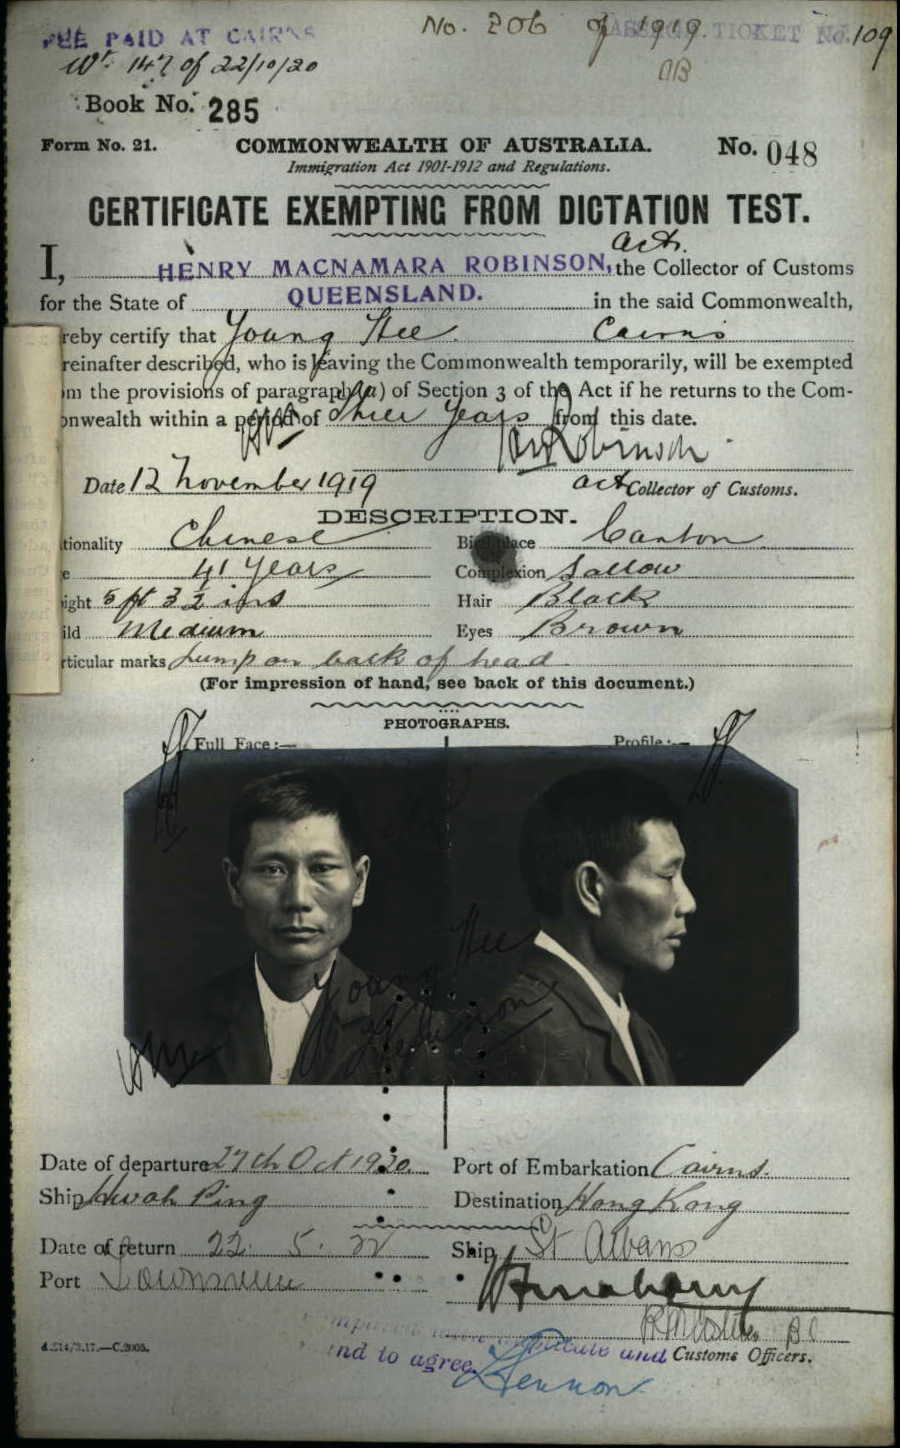 FEE PAID AT CAIRNS
No. 206 of 1919. TICKET No. 109
No. 147 of 22/10/20
Book No. 285
Form No. 21.
COMMONWEALTH OF AUSTRALIA.
No. 048
Immigration Act 1901-1912 and Regulations.
CERTIFICATE EXEMPTING FROM DICTATION TEST.
Act.
I, HENRY MACNAMARA ROBINSON, the Collector of Customs
for the State of QUEENSLAND. in the said Commonwealth,
reby certify that Young Hee. Cairns
reinafter described, who is leaving the Commonwealth temporarily, will be exempted
om the provisions of paragraph (a) of Section 3 of the Act if he returns to the Com-
onwealth within a period of Three Years from this date.
Robinson
Date 12 November 1919 Act Collector of Customs.
DESCRIPTION.
tionality Chinese Birthplace Canton
e 41 Years Complexion Sallow
ight 5 ft 3½ ins Hair Black
ild Medium Eyes Brown
rticular marks Lump on back of head
(For impression of hand, see back of this document.)
PHOTOGRAPHS.
Full Face :— Profile :—
Young Hee
Date of departure 27th Oct 1920. Port of Embarkation Cairns.
Ship Hwah Ping Destination Hong Kong
Date of return 22. 5. 22 Ship St Albans
Port Townsville
and
Customs Officers.
nd to agree
Lennon